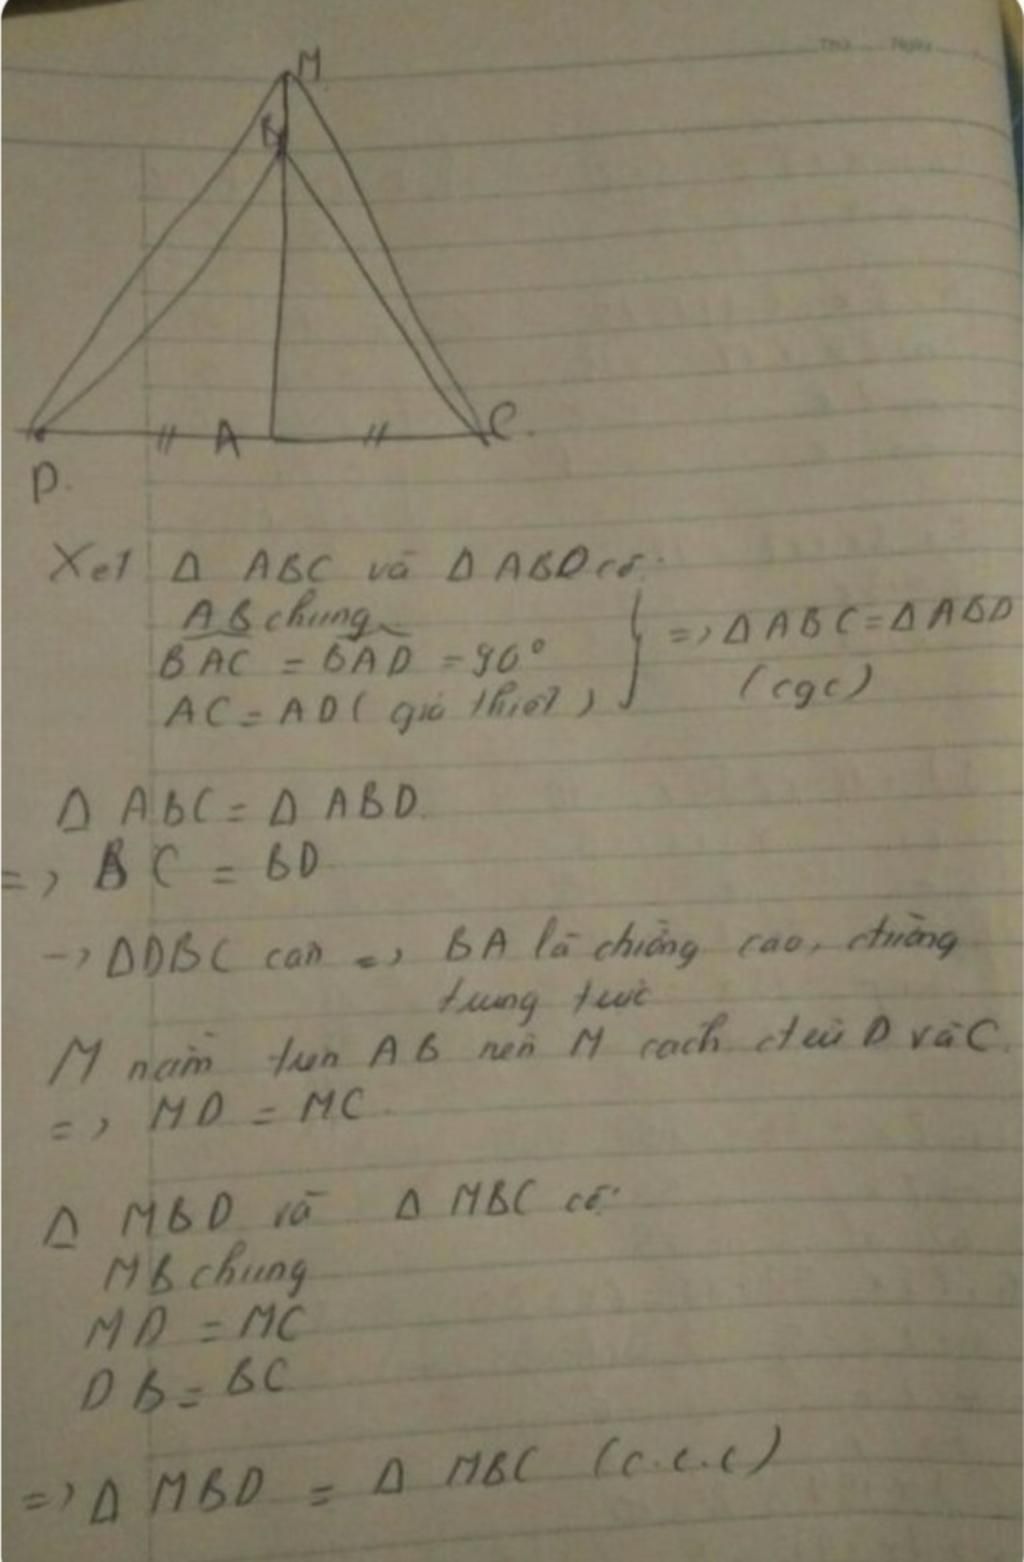 Thứ Ngày
M
B
A
C.
D.
Xét Δ ABC và Δ ABD có:
AB chung
BAC = BAD = 90° } => Δ ABC = Δ ABD
AC = AD ( giả thiết ) (cgc)
Δ ABC = Δ ABD.
=> BC = BD
-> ΔDBC cân => BA là đường cao, đường
trung trực
M nằm trên AB nên M cách đều D và C.
=> MD = MC.
Δ MBD và Δ MBC có:
MB chung
MD = MC
DB = BC
=> Δ MBD = Δ MBC (c.c.c)